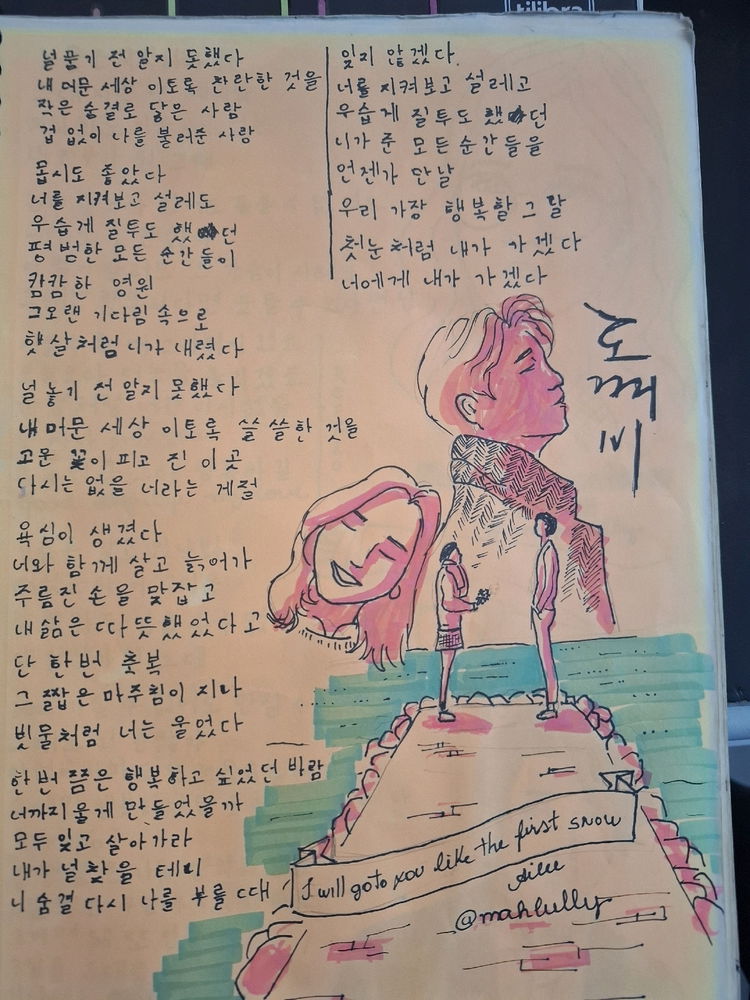 tilibra
널 품기 전 알지 못했다
내 머문 세상 이토록 찬란한 것을
작은 숨결로 닿은 사람
겁 없이 나를 불러준 사랑
몹시도 좋았다
너를 지켜보고 설레도
우습게 질투도 했던
평범한 모든 순간들이
캄캄한 영원
그오랜 기다림 속으로
햇살처럼 니가 내렸다
널 놓기 전 알지 못했다
내 머문 세상 이토록 쓸쓸한 것을
고운 꽃이 피고 진 이 곳
다시는 없을 너라는 계절
욕심이 생겼다
너와 함께 살고 늙어가
주름진 손을 맞잡고
내 삶은 따뜻했었다고
단 한번 축복
그 짧은 마주침이 지나
빗물처럼 너는 울었다
한번 쯤은 행복하고 싶었던 바람
너까지 울게 만들었을까
모두 잊고 살아가라
내가 널 찾을 테니
니 숨결 다시 나를 부를 때
잊지 않겠다.
너를 지켜보고 설레고
우습게 질투도 했던
니가 준 모든 순간들을
언젠가 만날
우리 가장 행복할 그 날
첫눈처럼 내가 가겠다
너에게 내가 가겠다
도깨비
I will go to you like the first snow
Ailee
@mahlully